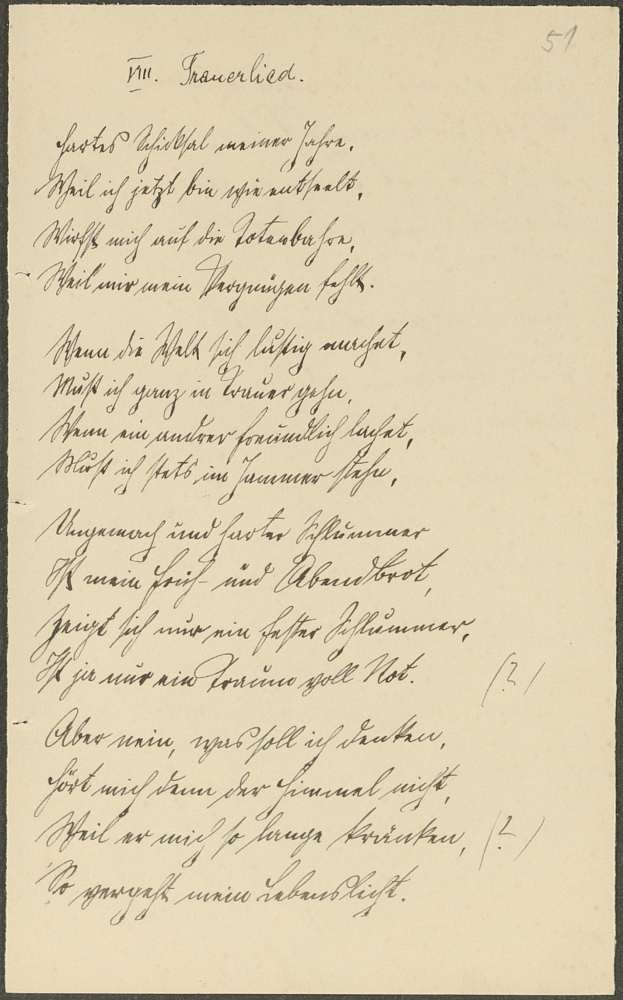 51
VIII. Trauerlied.
Hartes Schicksal meiner Jahre,
Weil ich jetzt bin wie entseelt,
Wirfst mich auf die Totenbahre,
Weil mir mein Vergnügen fehlt.
Wenn die Welt sich lustig machet,
Muß ich ganz in Trauer gehn,
Wenn ein andrer freundlich lachet,
Muß ich stets im Jammer stehn,
Ungemach und harter Schlummer
Ist mein Früh- und Abendbrot,
Zeigt sich nur ein fester Schlummer,
Ist ja nur ein Traum voll Not. (?)
Aber nein, was soll ich denken,
Hört mich denn der Himmel nicht,
Weil er mich so lange kränken, (?)
So vergeht mein Lebenslicht.